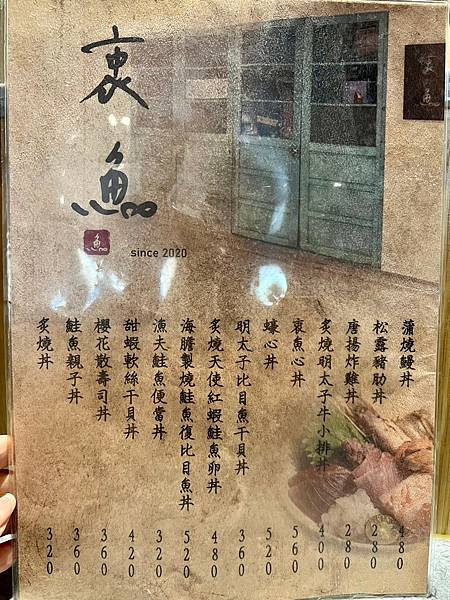 衷魚
魚
since 2020
衷魚
蒲燒鰻丼 480
松露豬肋丼 280
唐揚炸雞丼 280
炙燒明太子牛小排丼 400
衷魚心丼 560
蠔心丼 520
明太子比目魚干貝丼 360
炙燒天使紅蝦鮭魚卵丼 480
海膽製燒鮭魚復比目魚丼 520
漁夫鮭魚便當丼 320
甜蝦軟絲干貝丼 420
櫻花散壽司丼 360
鮭魚親子丼 360
炙燒丼 320